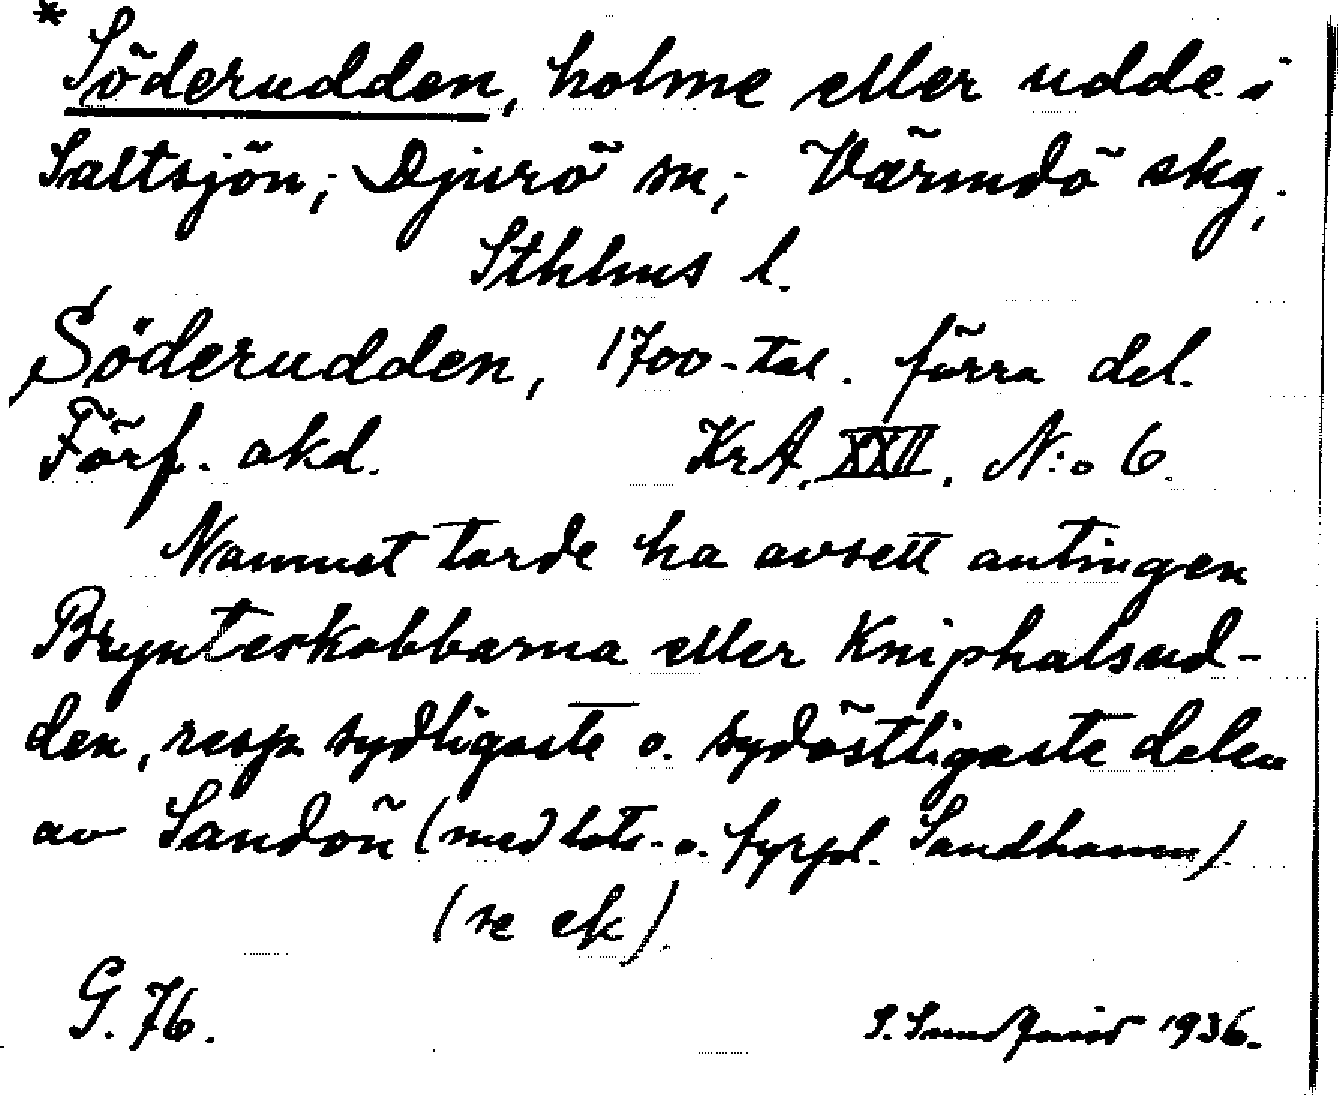 * Söderudden, holme eller udde i
Saltsjön; Djurö sn; Värmdö skg,
Sthlms l.
Söderudden, 1700-tal. förra del.
Förf. okd. KrA. XXII. N:o 6.
Namnet torde ha avsett antingen
Brynteskobbarna eller Kniphalsud-
den, resp. sydligaste o. sydöstligaste delen
av Sandön (med lots- o. fyrpl. Sandhamn)
(se ek).
G. 76.
S. 1936.